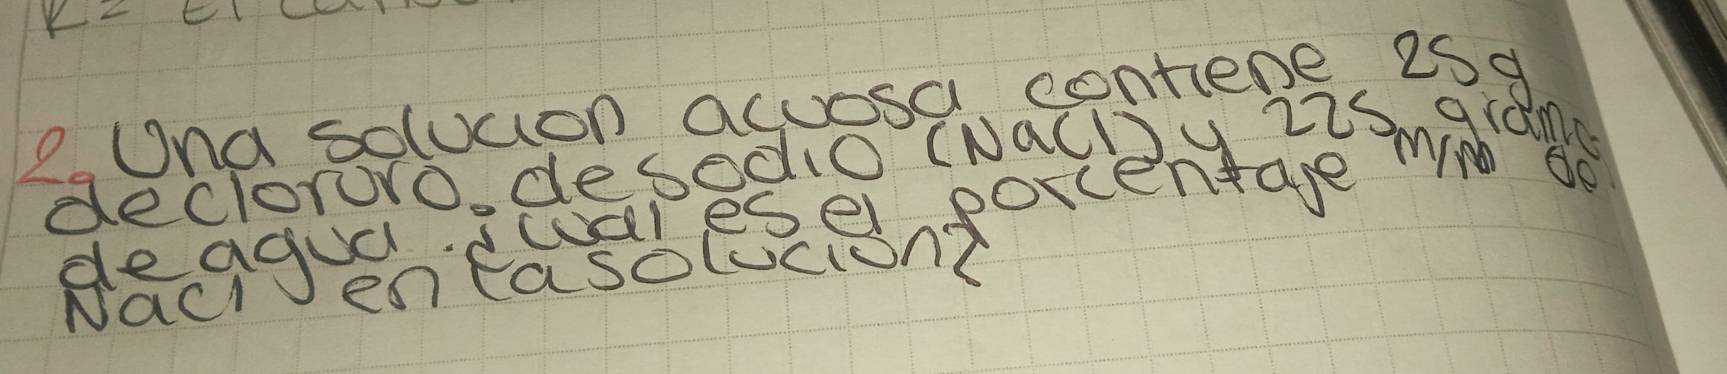 2. Una solucion acuosa contiene 25g
decloruro. desodio (NaCl) y 225 gramo
de agua. ¿Cual es el porcentaje m/m de
Nacl en la solucion?